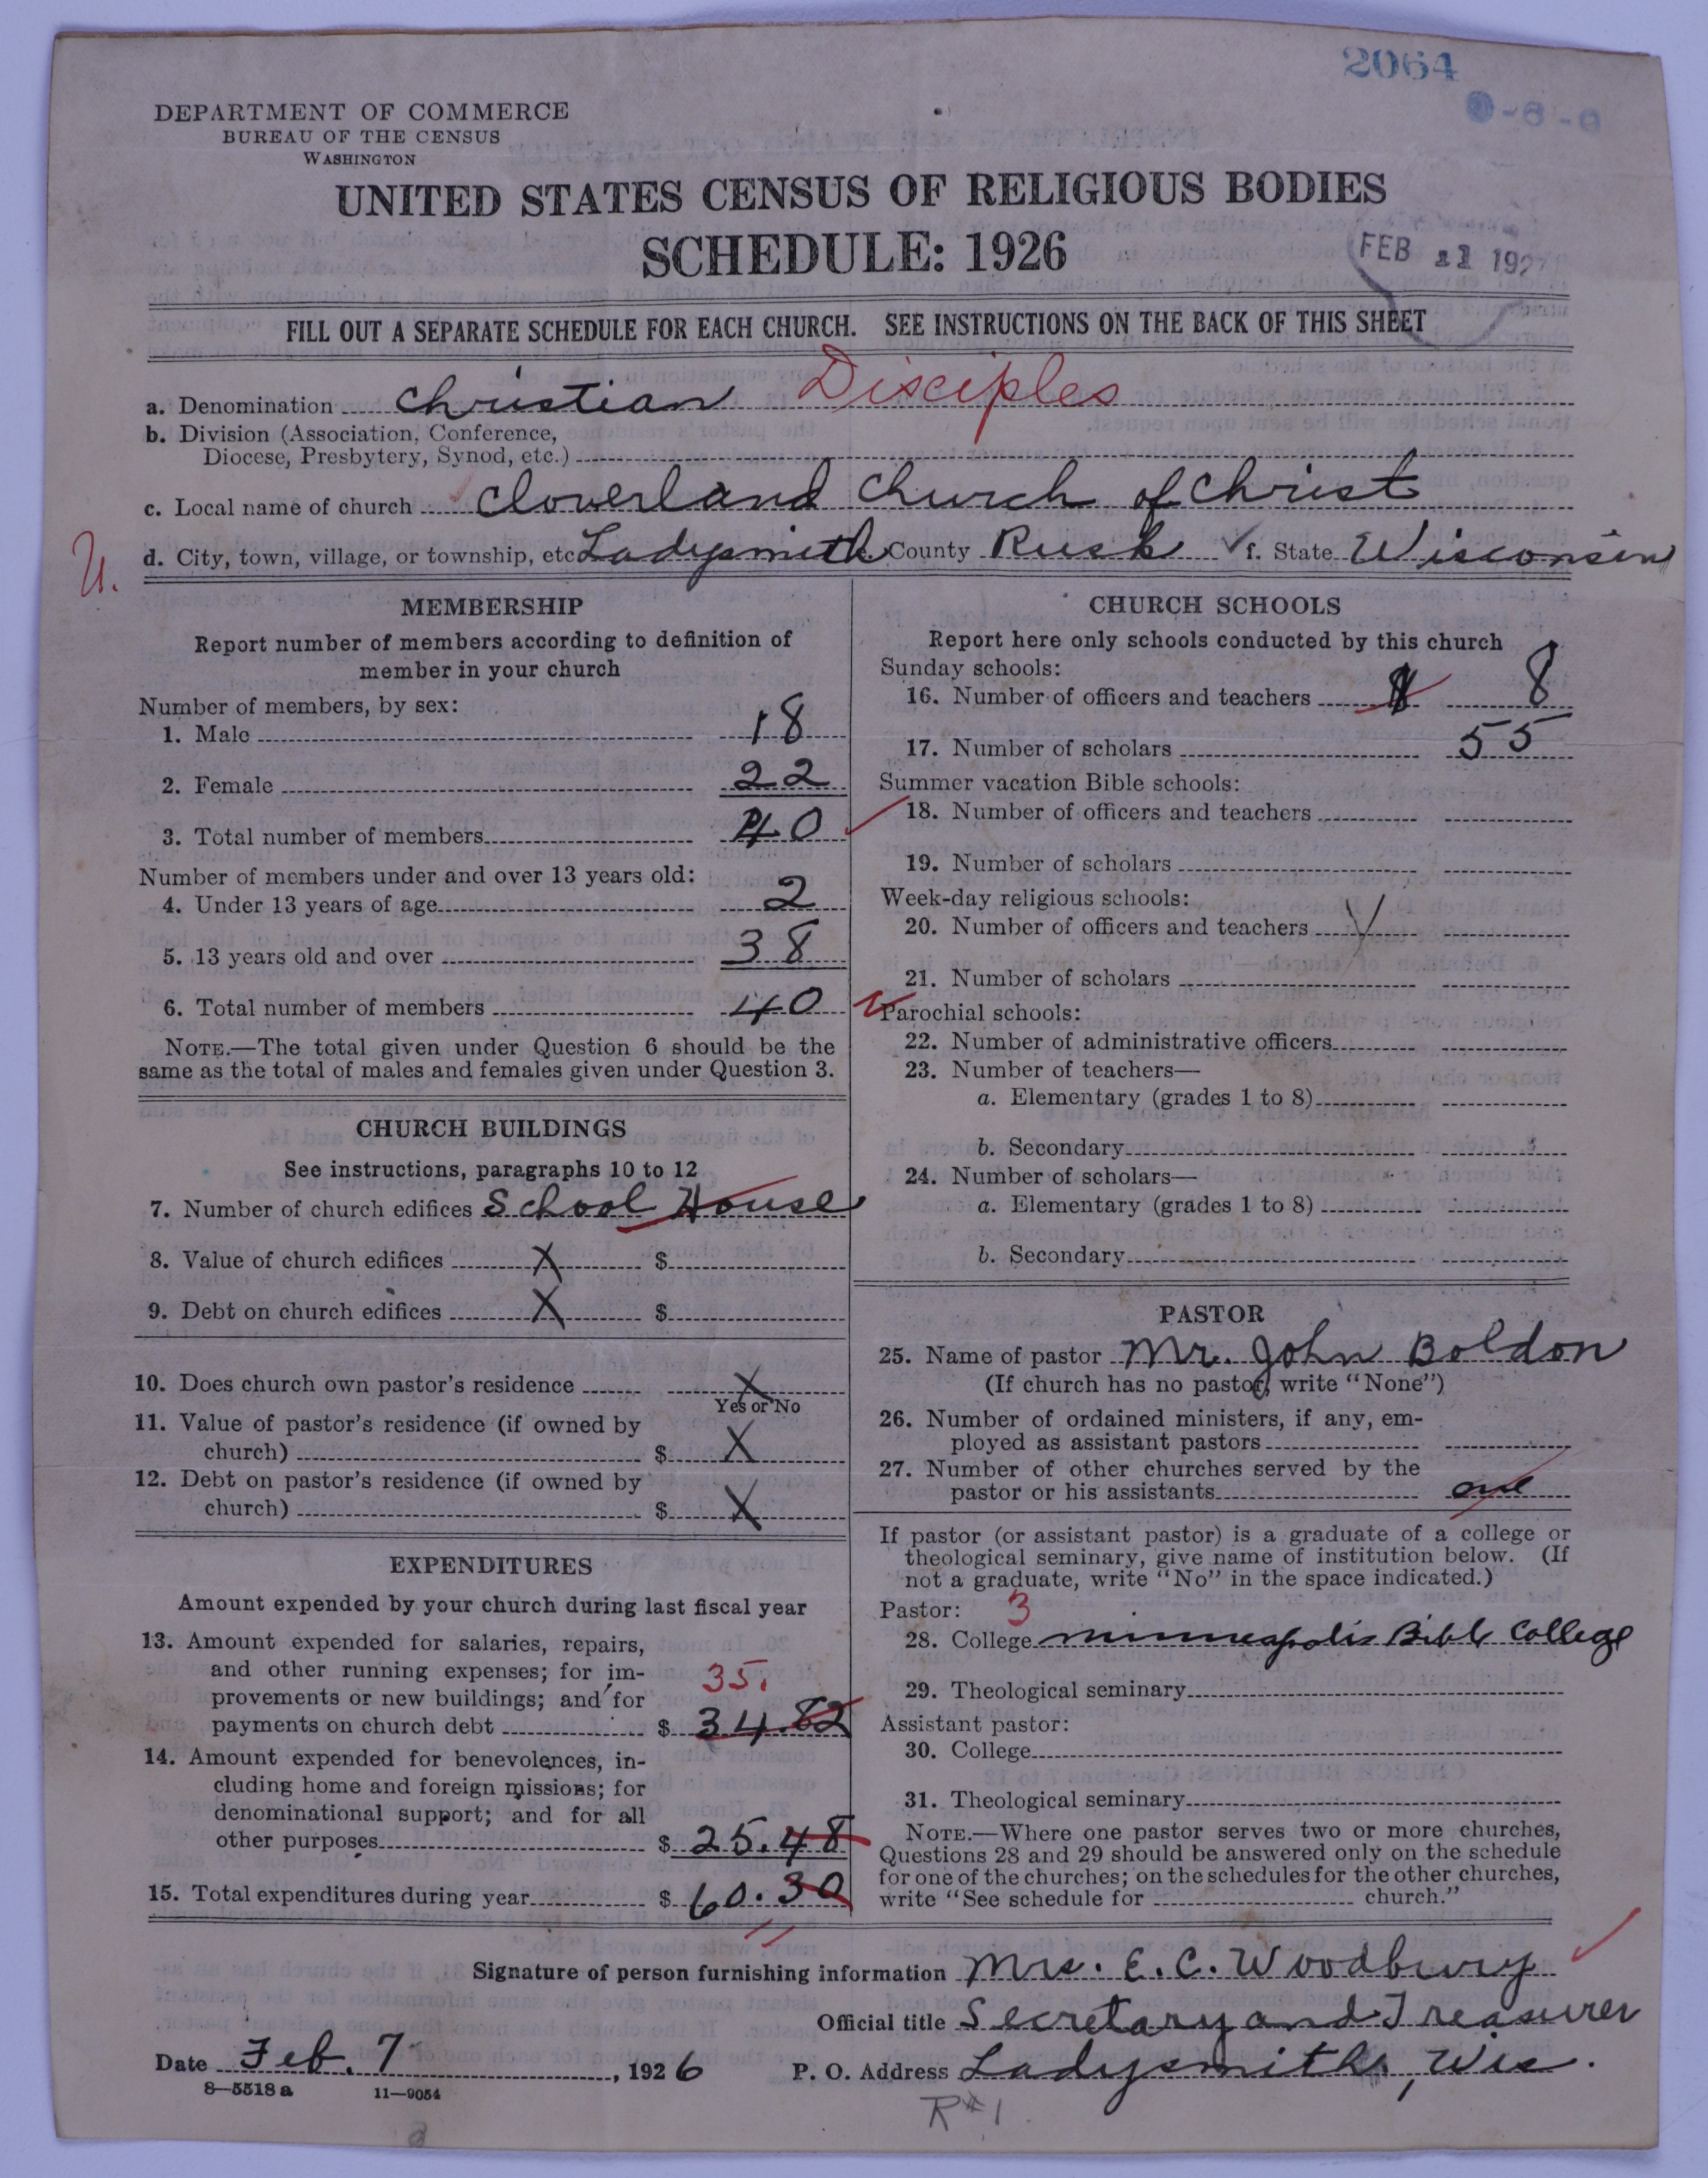 2064
DEPARTMENT OF COMMERCE
BUREAU OF THE CENSUS
WASHINGTON
UNITED STATES CENSUS OF RELIGIOUS BODIES
SCHEDULE: 1926
FEB 11 1927
FILL OUT A SEPARATE SCHEDULE FOR EACH CHURCH. SEE INSTRUCTIONS ON THE BACK OF THIS SHEET
a. Denomination Christian Disciples
b. Division (Association, Conference,
Diocese, Presbytery, Synod, etc.)
c. Local name of church Cloverland Church of Christ
d. City, town, village, or township, etc. Ladysmith County Rusk f. State Wisconsin
MEMBERSHIP
Report number of members according to definition of
member in your church
Number of members, by sex:
1. Male 18
2. Female 22
3. Total number of members 40
Number of members under and over 13 years old:
4. Under 13 years of age 2
5. 13 years old and over 38
6. Total number of members 40
NOTE.—The total given under Question 6 should be the
same as the total of males and females given under Question 3.
CHURCH BUILDINGS
See instructions, paragraphs 10 to 12
7. Number of church edifices School House
8. Value of church edifices X $
9. Debt on church edifices X $
10. Does church own pastor's residence X
Yes or No
11. Value of pastor's residence (if owned by
church) $ X
12. Debt on pastor's residence (if owned by
church) $ X
EXPENDITURES
Amount expended by your church during last fiscal year
13. Amount expended for salaries, repairs,
and other running expenses; for im-
provements or new buildings; and for
35.
payments on church debt $ 34.82
14. Amount expended for benevolences, in-
cluding home and foreign missions; for
denominational support; and for all
other purposes $ 25.48
15. Total expenditures during year $ 60.30
CHURCH SCHOOLS
Report here only schools conducted by this church
Sunday schools:
16. Number of officers and teachers 8
17. Number of scholars 55
Summer vacation Bible schools:
18. Number of officers and teachers
19. Number of scholars
Week-day religious schools:
20. Number of officers and teachers
21. Number of scholars
Parochial schools:
22. Number of administrative officers
23. Number of teachers—
a. Elementary (grades 1 to 8)
b. Secondary
24. Number of scholars—
a. Elementary (grades 1 to 8)
b. Secondary
PASTOR
25. Name of pastor Mr. John Boldon
(If church has no pastor, write "None")
26. Number of ordained ministers, if any, em-
ployed as assistant pastors
27. Number of other churches served by the
pastor or his assistants one
If pastor (or assistant pastor) is a graduate of a college or
theological seminary, give name of institution below. (If
not a graduate, write "No" in the space indicated.)
Pastor: 3
28. College Minneapolis Bible College
29. Theological seminary
Assistant pastor:
30. College
31. Theological seminary
NOTE.—Where one pastor serves two or more churches,
Questions 28 and 29 should be answered only on the schedule
for one of the churches; on the schedules for the other churches,
write "See schedule for church."
Signature of person furnishing information Mrs. E. C. Woodbury
Official title Secretary and Treasurer
Date Feb. 7, 1926 P. O. Address Ladysmith, Wis.
8—5518a 11—9054
R#1